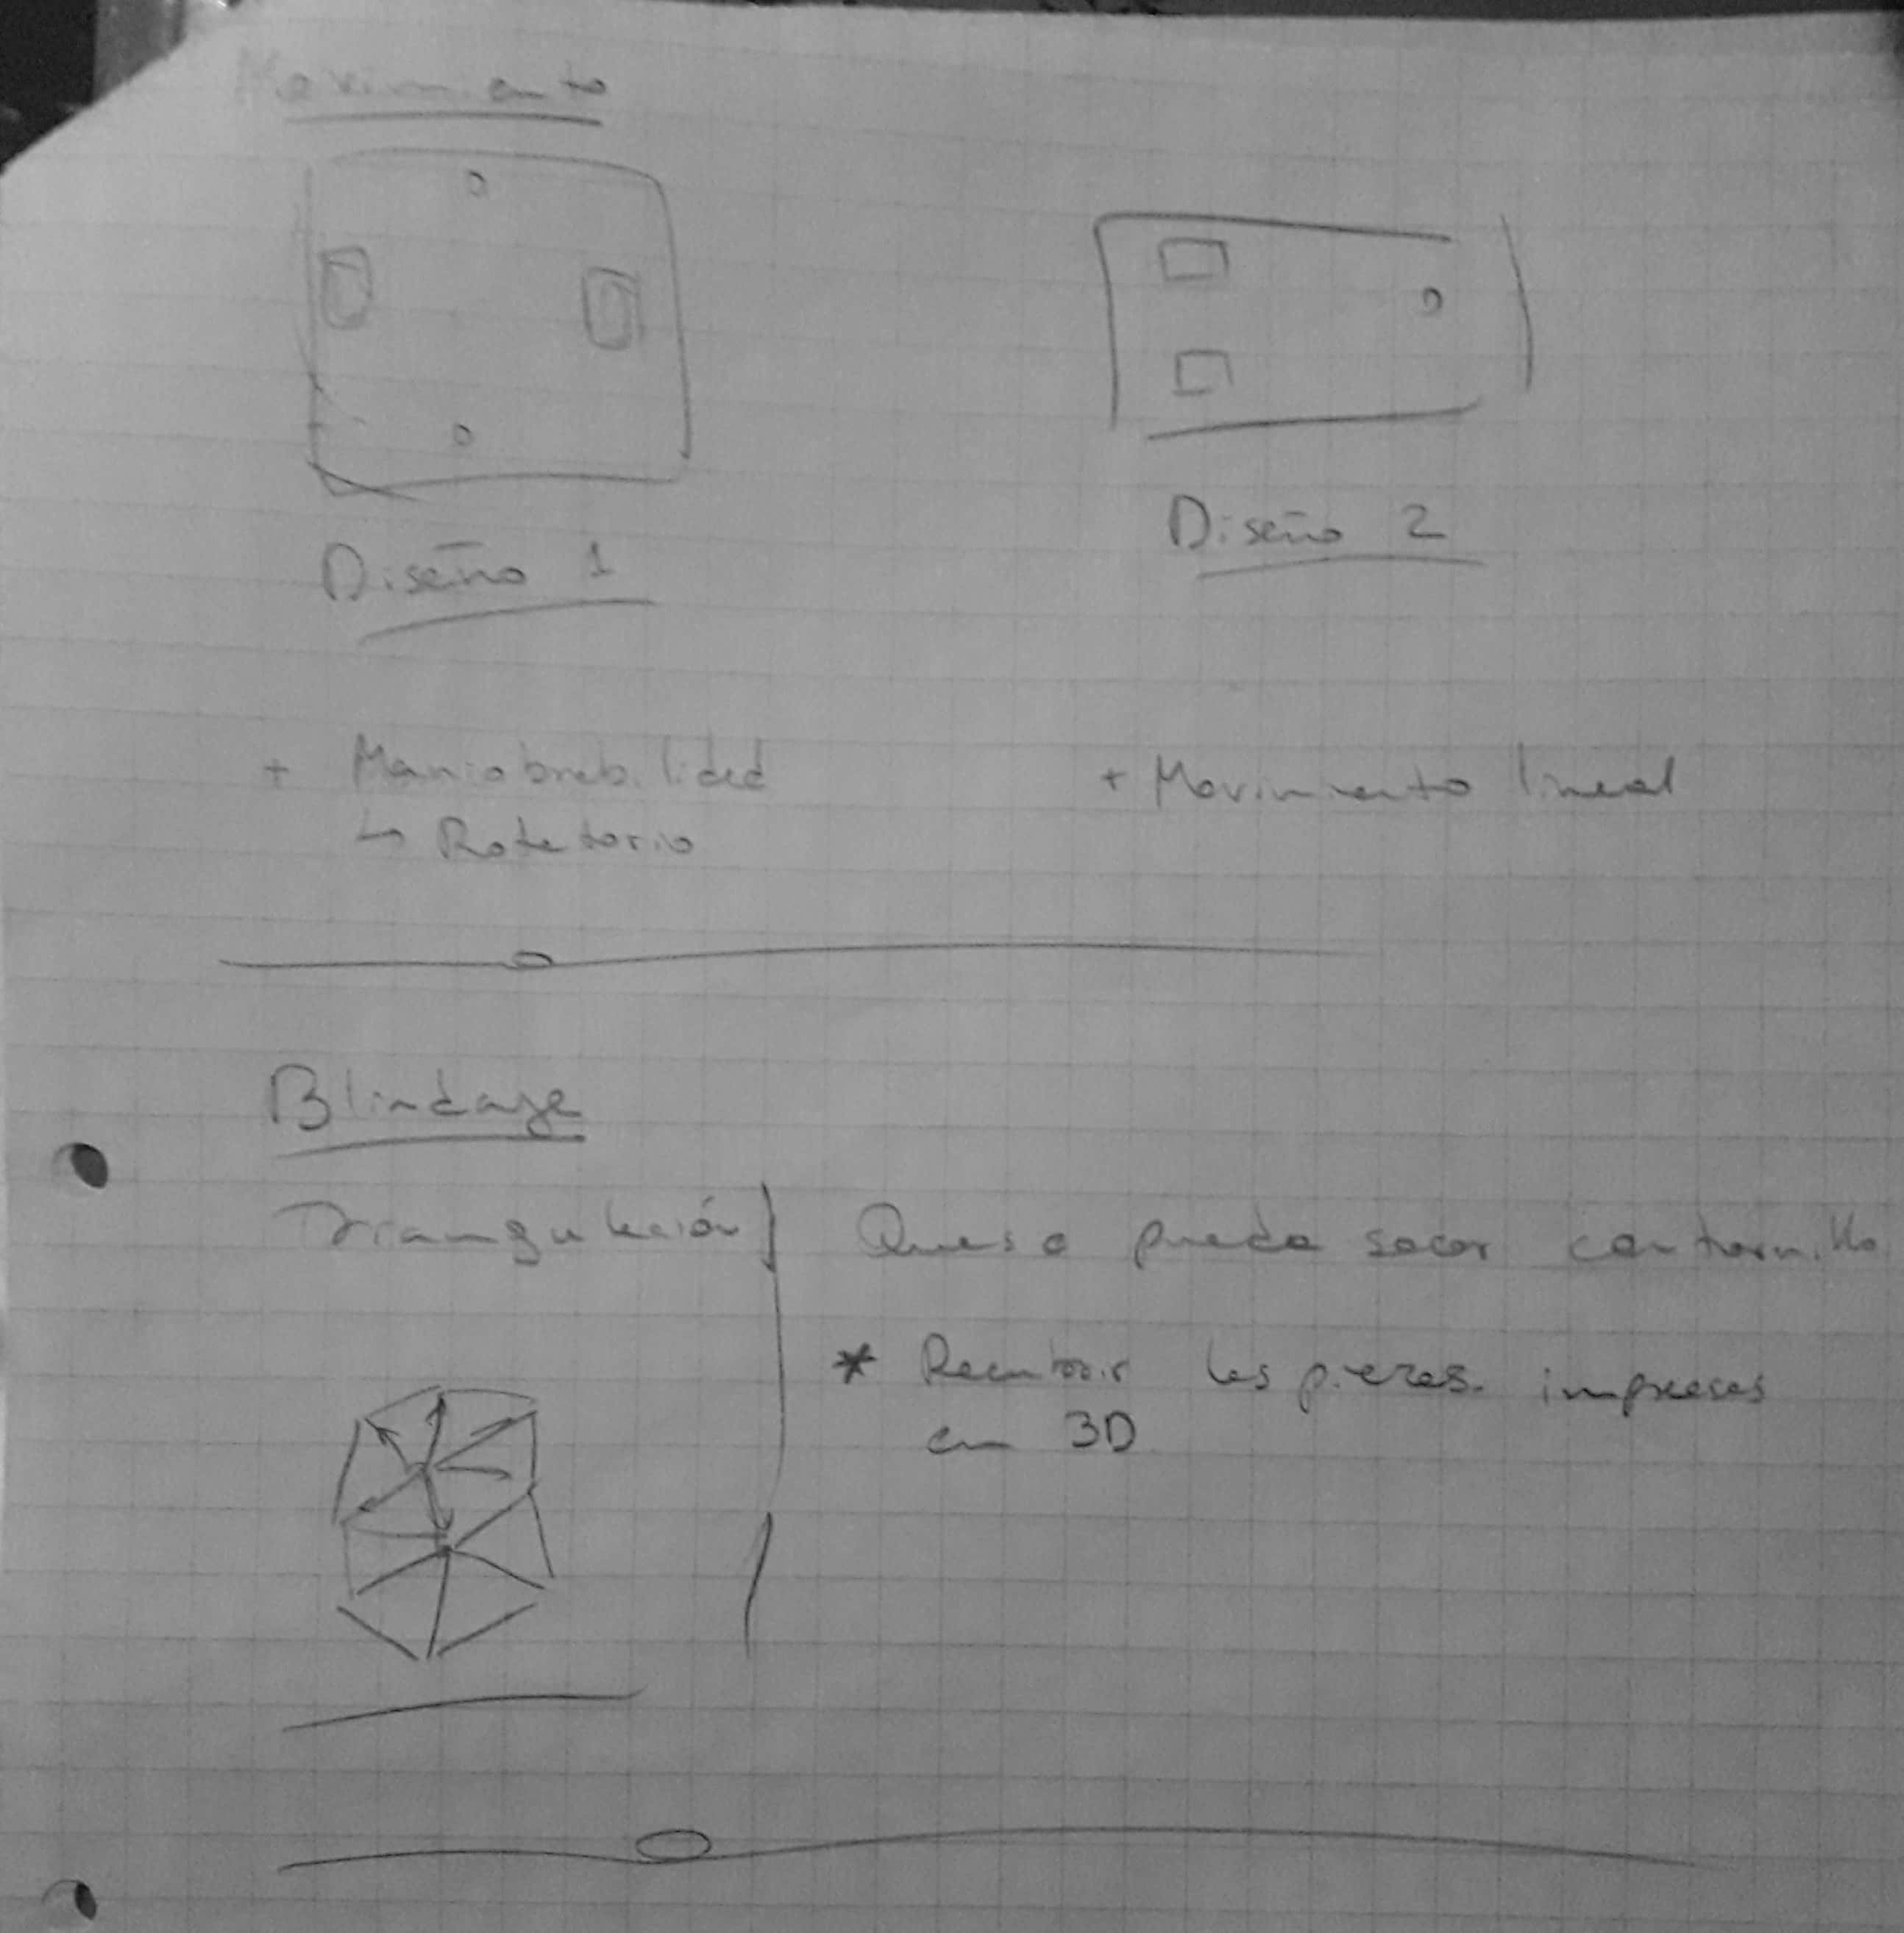 Movimiento
Diseño 1
Diseño 2
+ Maniobrabilidad
↳ Rotatorio
+ Movimiento lineal
Blindaje
Triangulación
Que se pueda sacar con tornillo
* Recubrir las piezas impresas
en 3D